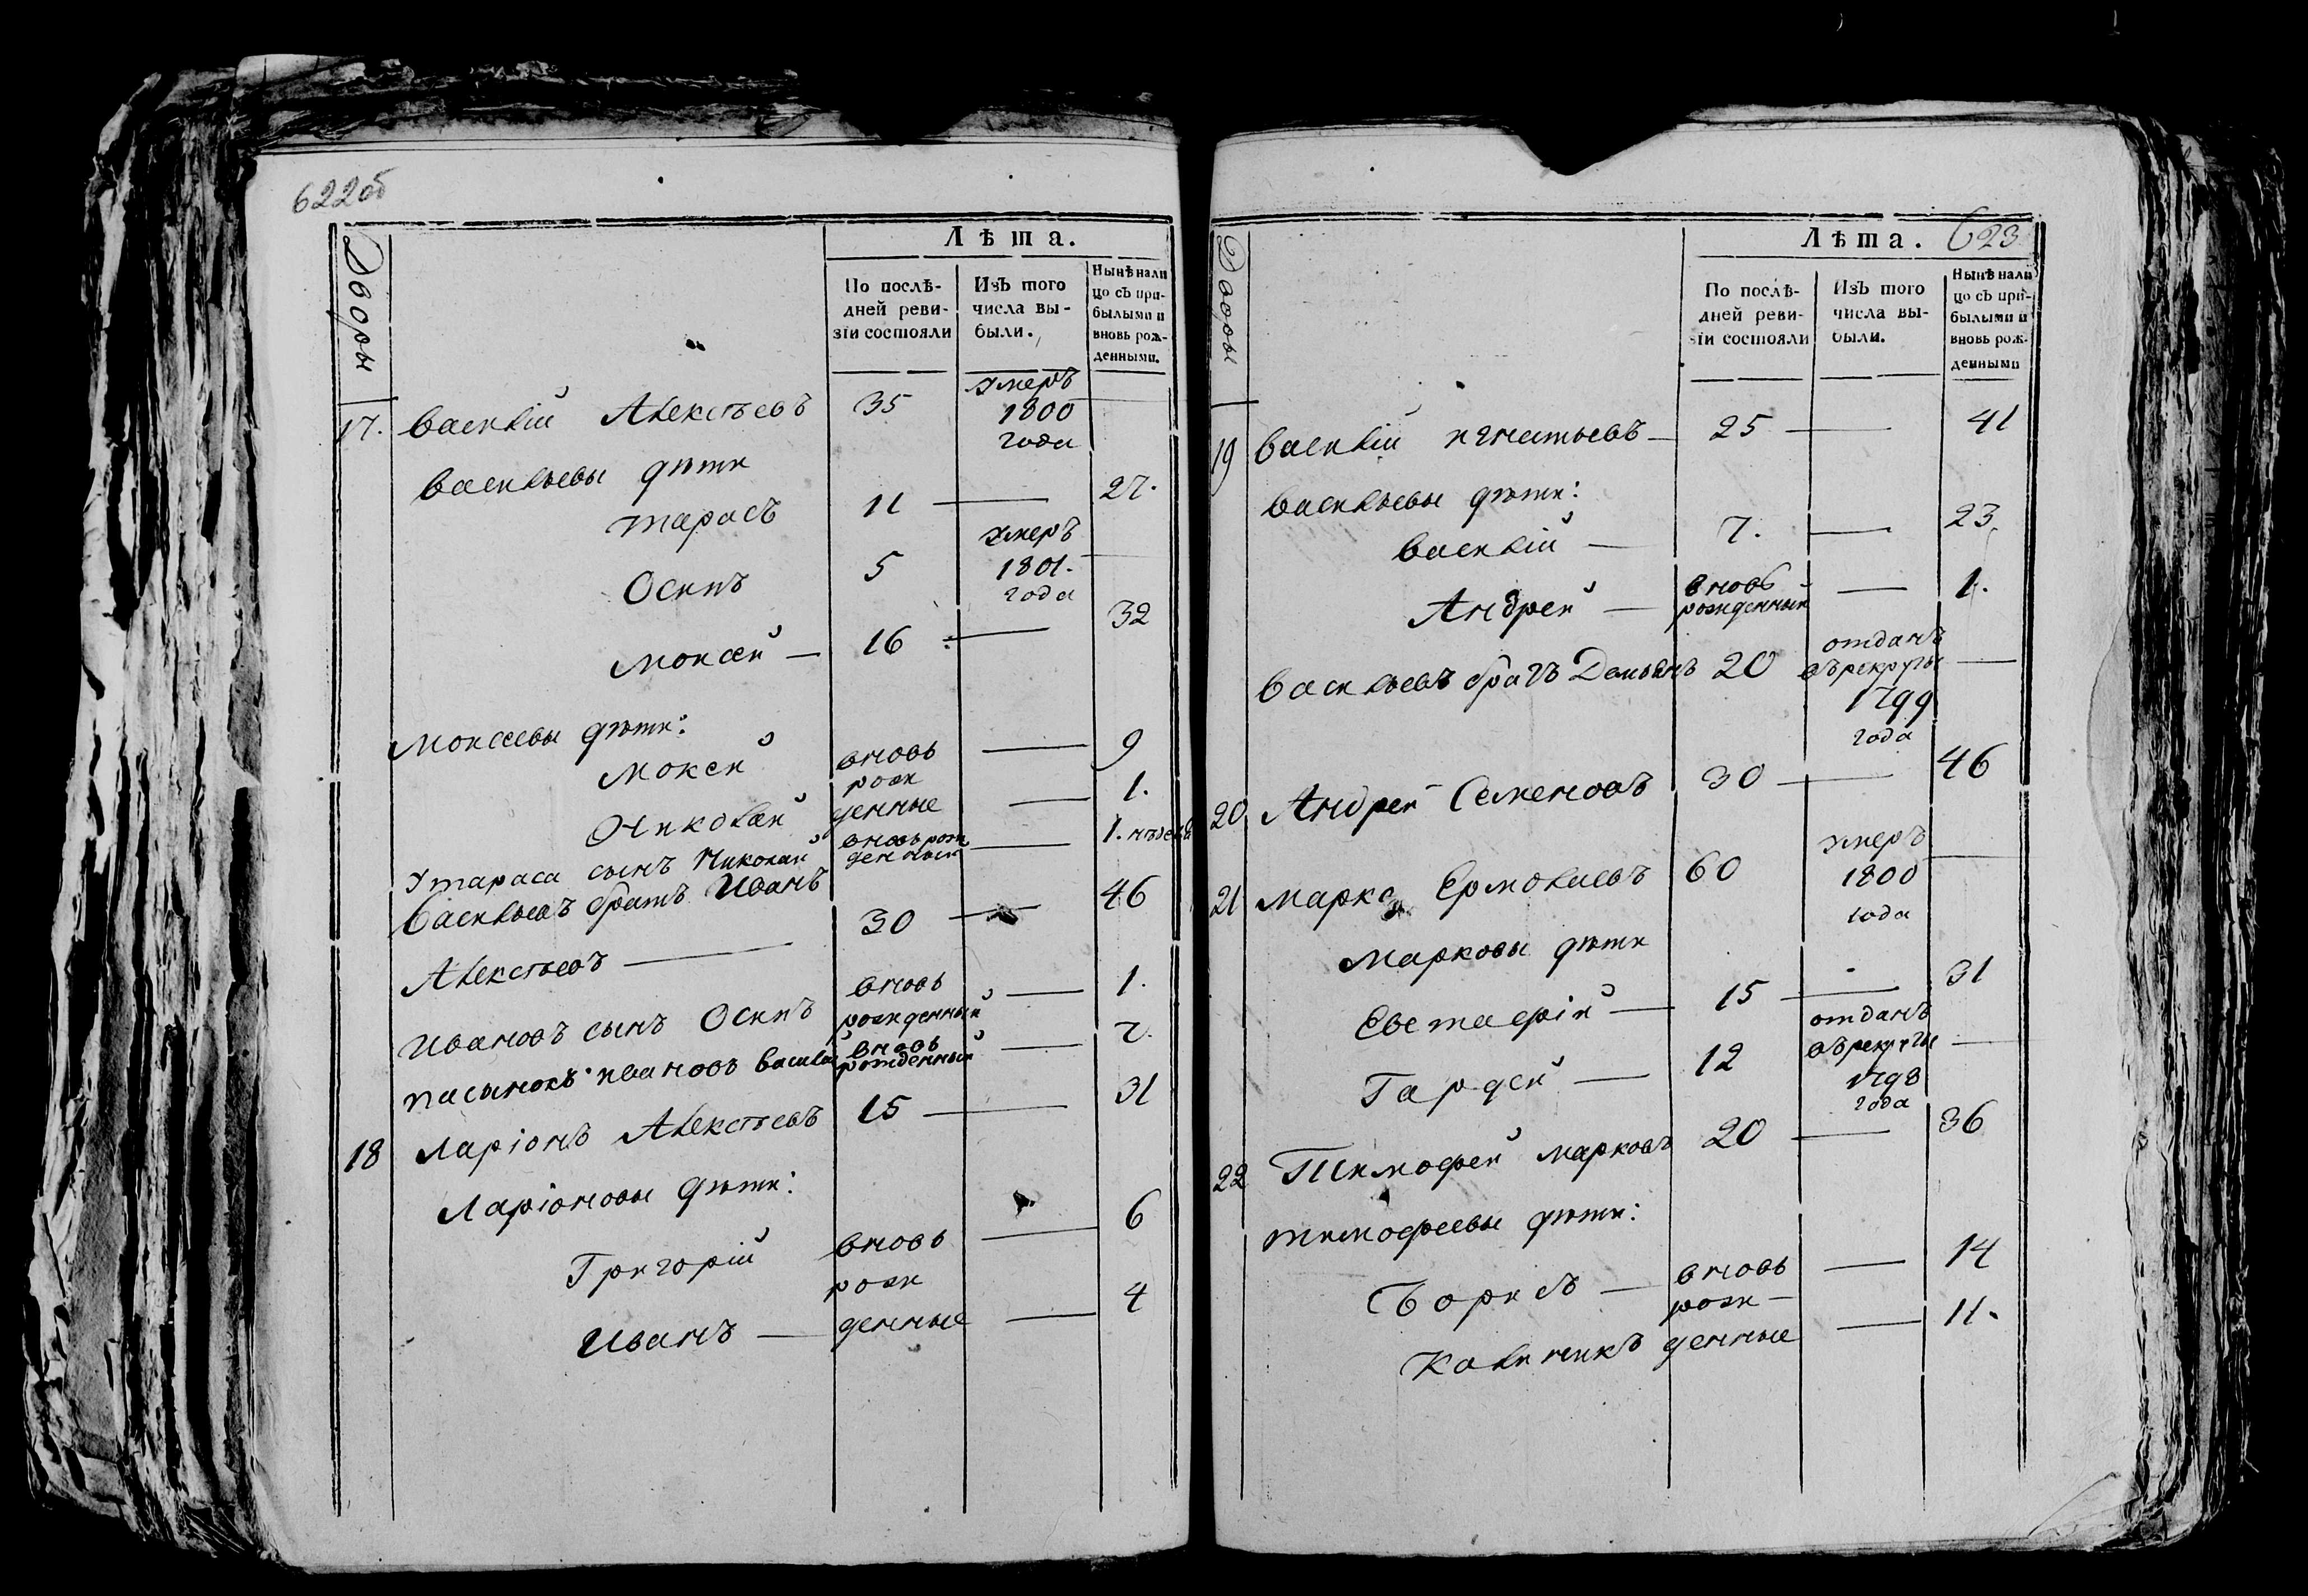 622об
Дворы
Лѣта.
По послѣ-
дней реви-
зіи состояли
Изъ того
числа вы-
были.
Нынѣ нали
цо съ при-
былыми и
вновь рож-
денными.
17. Василій Алексѣевъ 35 умеръ
1800
года
Васильевы дѣти
Тарасъ 11 — 27.
Осипъ 5 умеръ
1801.
года
Моисей — 16 — 32
Моисеевы дѣти:
Мокей вновь — 9
рож
Николай денные — 1.
У Тараса сынъ Николай вновь рож
денный — 1.
Васильевъ братъ Иванъ
Алексѣевъ — 30 — 46
Ивановъ сынъ Осипъ вновь
рожденный — 1.
пасынокъ Ивановъ вновь
рожденный — 7.
18 Ларіонъ Алексѣевъ 15 — 31
Ларіоновы дѣти:
Григорій вновь — 6
рож
Иванъ — денные — 4
623
Дворы
Лѣта.
По послѣ-
дней реви-
зіи состояли
Изъ того
числа вы-
были.
Нынѣ нали
цо съ при-
былыми и
вновь рож-
денными
19 Василій Игнатьевъ — 25 — 41
Васильевы дѣти:
Василій — 7. — 23.
Андрей — вновь
рожденный — 1.
Васильевъ братъ Демьянъ 20 отданъ
въ рекруты —
1799
года
20 Андрей Семеновъ 30 — 46
21 Марко Ермолаевъ 60 умеръ
1800 —
года
Марковы дѣти
Евстафій — 15 — 31
Гардей — 12 отданъ
въ рекруты —
1798
года
22 Тимофей Марковъ 20 — 36
Тимофеевы дѣти:
Борисъ — вновь — 14
рож—
Калиникъ денные — 11.